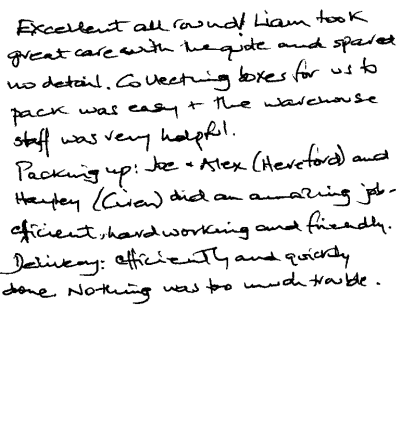 Excellent all round! Liam took
great care with the quote and spared
no detail. Collecting boxes for us to
pack was easy + the warehouse
staff was very helpful.
Packing up: Joe + Alex (Hereford) and
Hayley (Ciren) did an amazing job -
efficient, hard working and friendly.
Delivery: efficiently and quickly
done. Nothing was too much trouble.